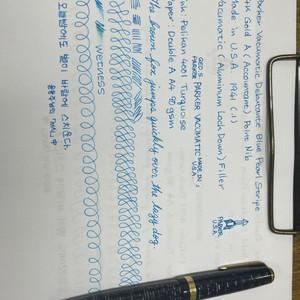 Parker Vacumatic Debutante Blue Pearl Stripe
14k Gold Ac (Accountant) Point Nib
Made in U.S.A 1941 (.1.)
Vacumatic (Aluminum Lock Down) Filler
PARKER
U.S.A.
GEO S.
PARKER
PARKER VACUMATIC MADE IN
U.S.A.
Ink: Pelikan 4001 Turquoise
Paper: Double A A4 80gsm
The brown fox jumps quickly over the lazy dog.
wetness
오늘밤에도 별이 바람에 스치운다.
윤동주님의 「서시」 中